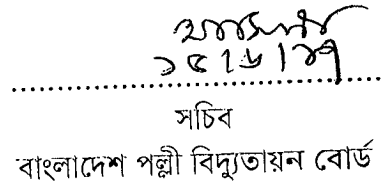 ১৫/৬/১৭
..........................................
সচিব
বাংলাদেশ পল্লী বিদ্যুতায়ন বোর্ড